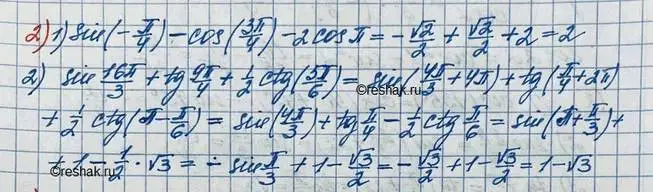 2) 1) sin(-π/4) - cos(3π/4) - 2cosπ = -√2/2 + √2/2 + 2 = 2
2) sin 16π/3 + tg 9π/4 + 1/2 ctg(5π/6) = sin(4π/3 + 4π) + tg(π/4 + 2π)
+ 1/2 ctg(π - π/6) = sin(4π/3) + tg π/4 - 1/2 ctg π/6 = sin(π + π/3) +
+ 1 - 1/2 · √3 = - sin π/3 + 1 - √3/2 = -√3/2 + 1 - √3/2 = 1 - √3